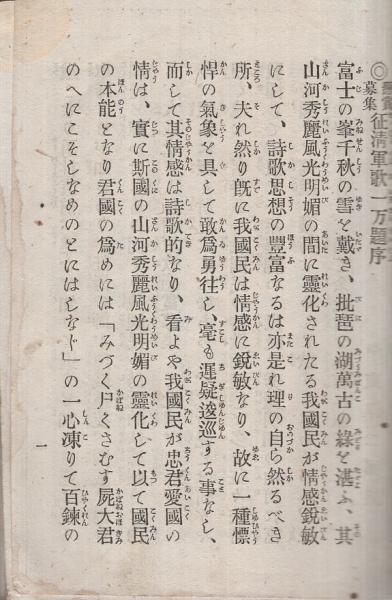 ◎募集征清軍歌一万題序
富士の峯千秋の雪を戴き、批琶の湖萬古の綠を湛ふ、其
山河秀麗風光明媚の間に靈化されたる我國民が情感銳敏
にして、詩歌思想の豐富なるは亦是れ理の自ら然るべき
所、夫れ然り旣に我國民は情感に銳敏なり、故に一種慓
悍の氣象と具して敢爲勇往し、毫も遲疑逡巡する事なし、
而して其情感は詩歌的なり、看よや我國民が忠君愛國の
情は、實に斯國の山河秀麗風光明媚の靈化して以て國民
の本能となり君國の爲めには「みづく尸くさむす屍大君
のへにこそしなめのとにはしなじ」の一心凍りて百鍊の
一